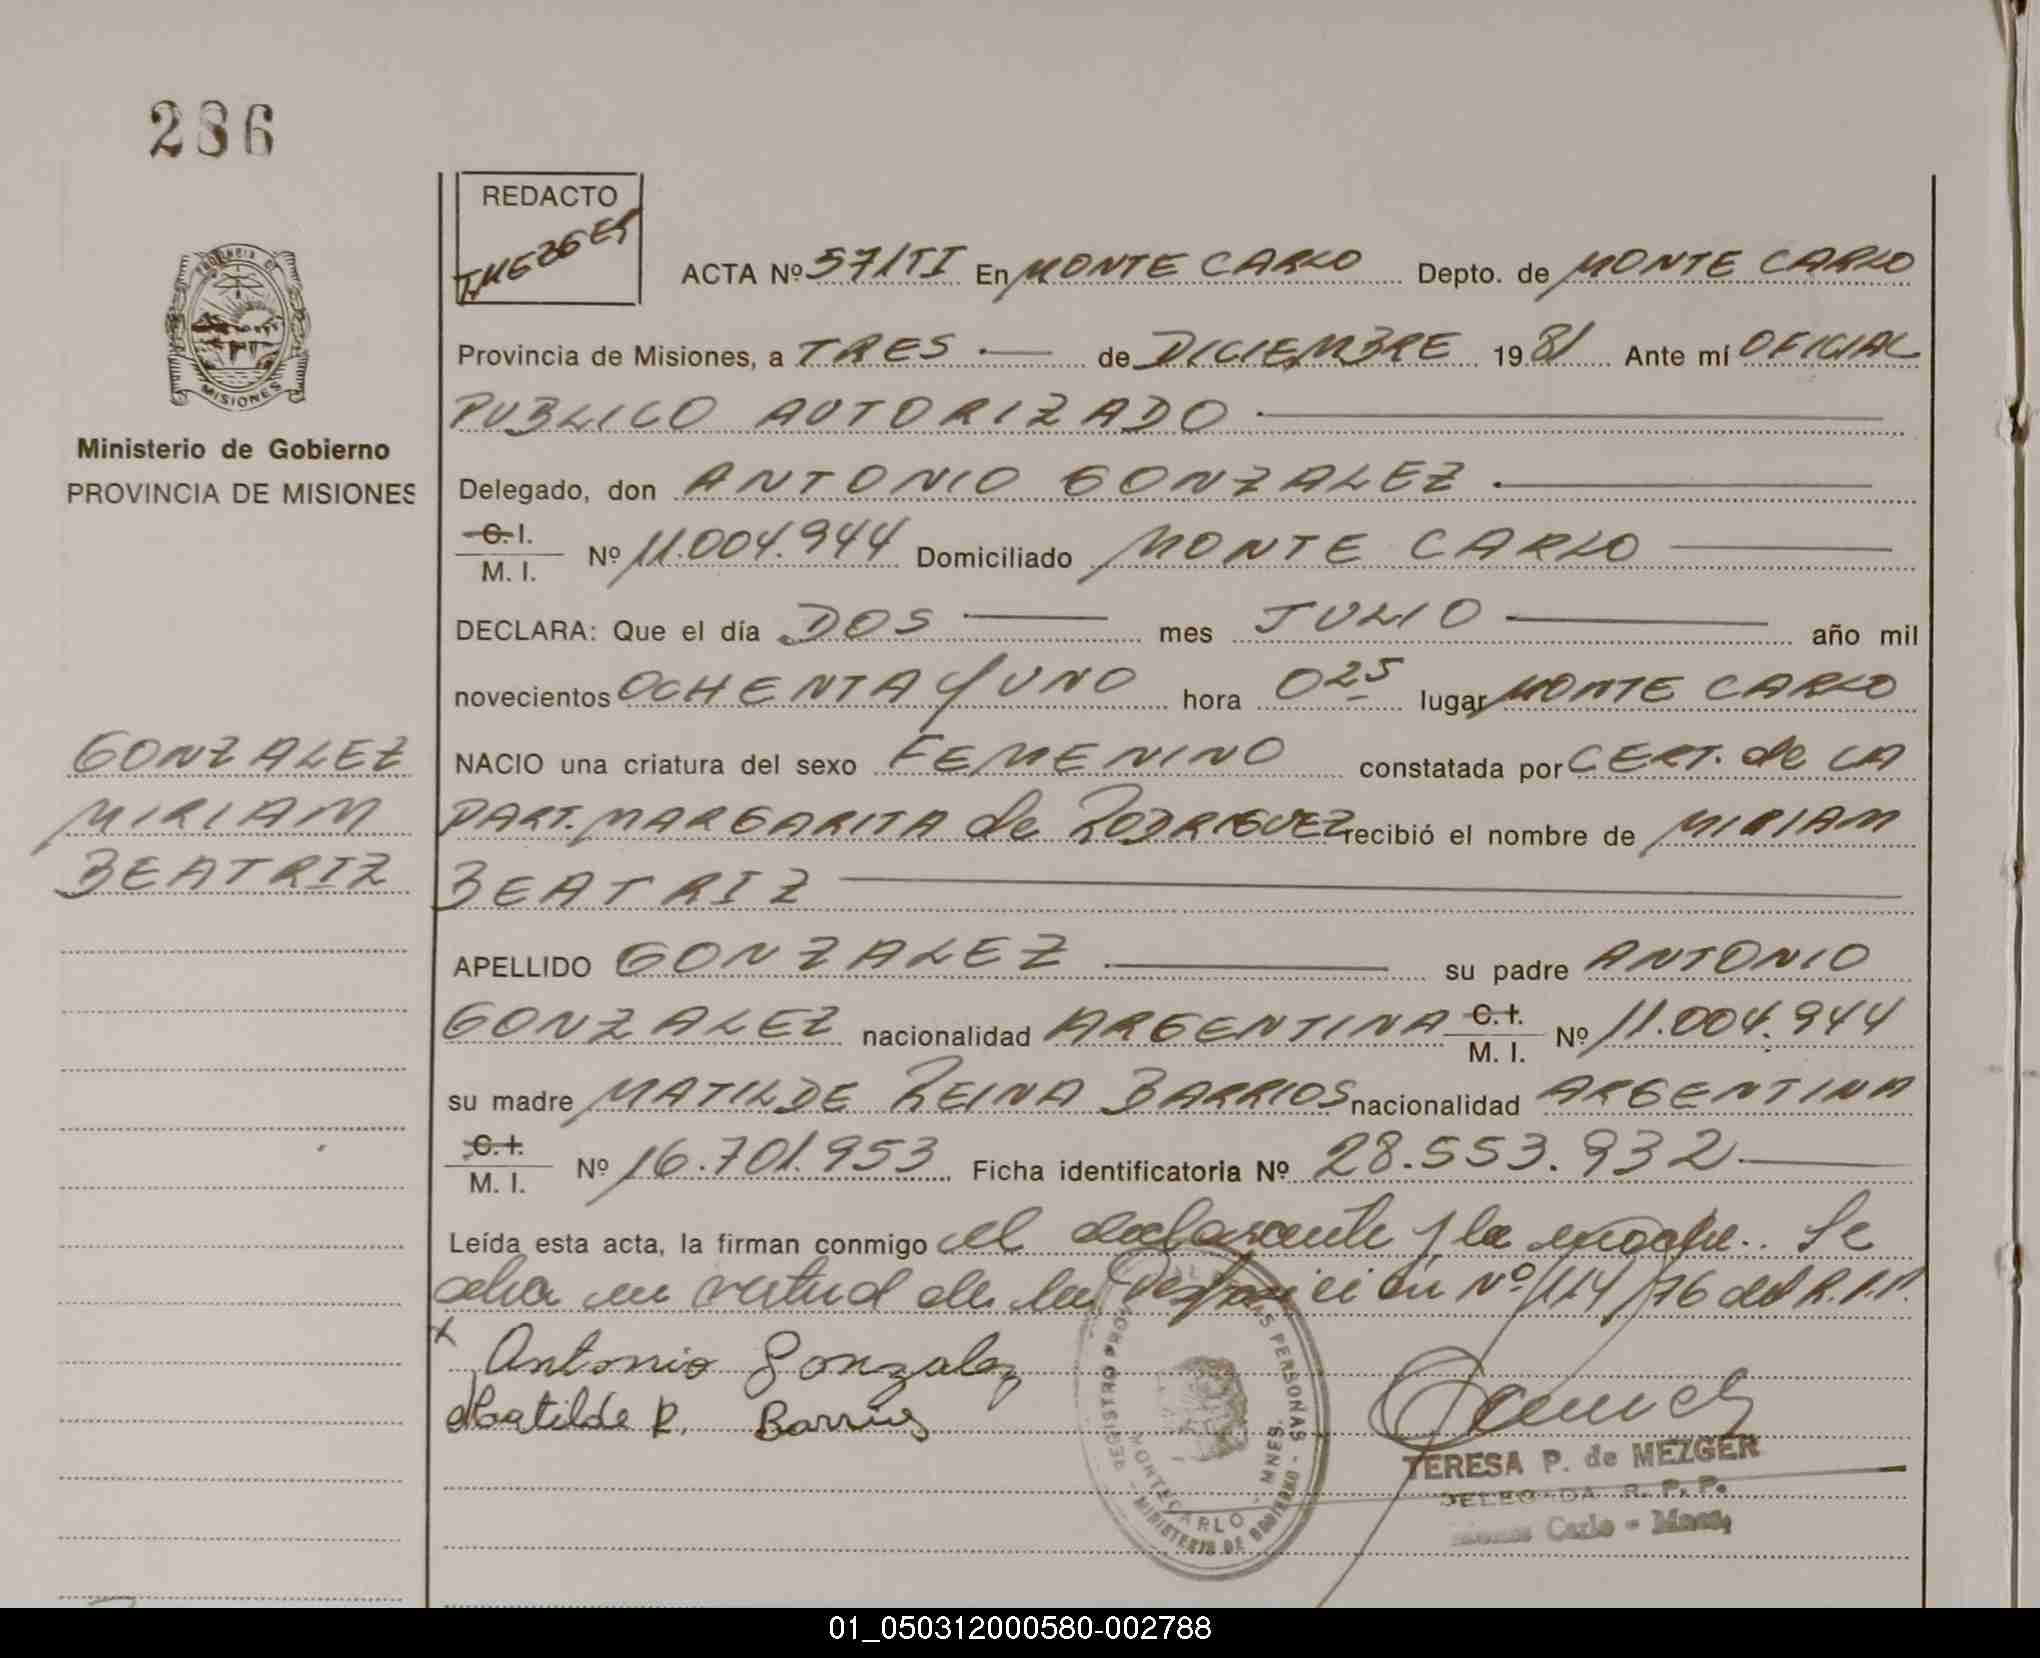 286
REDACTO
T. MEZGER
PROVINCIA DE
MISIONES
Ministerio de Gobierno
PROVINCIA DE MISIONES
GONZALEZ
MIRIAM
BEATRIZ
ACTA Nº 57/TI En MONTE CARLO Depto. de MONTE CARLO
Provincia de Misiones, a TRES de DICIEMBRE 1981 Ante mí OFICIAL
PUBLICO AUTORIZADO
Delegado, don ANTONIO GONZALEZ
C. I. / M. I. Nº 11.004.944 Domiciliado MONTE CARLO
DECLARA: Que el día DOS mes JULIO año mil
novecientos OCHENTA Y UNO hora 0 25 lugar MONTE CARLO
NACIO una criatura del sexo FEMENINO constatada por CERT. de LA
PART. MARGARITA de RODRIGUEZ recibió el nombre de MIRIAM
BEATRIZ
APELLIDO GONZALEZ su padre ANTONIO
GONZALEZ nacionalidad ARGENTINA C. I. / M. I. Nº 11.004.944
su madre MATILDE REINA BARRIOS nacionalidad ARGENTINA
C. I. / M. I. Nº 16.701.953 Ficha identificatoria Nº 28.553.932
Leída esta acta, la firman conmigo el declarante y la madre. Se
labra en virtud de la Disposición Nº 114/76 del R.P.P.
x Antonio Gonzalez
Matilde R. Barrios
REGISTRO PROV. DE LAS PERSONAS
MONTECARLO - MNES.
MINISTERIO DE GOBIERNO
TERESA P. de MEZGER
DELEGADA R. P. P.
Monte Carlo - Mnes.
01_050312000580-002788